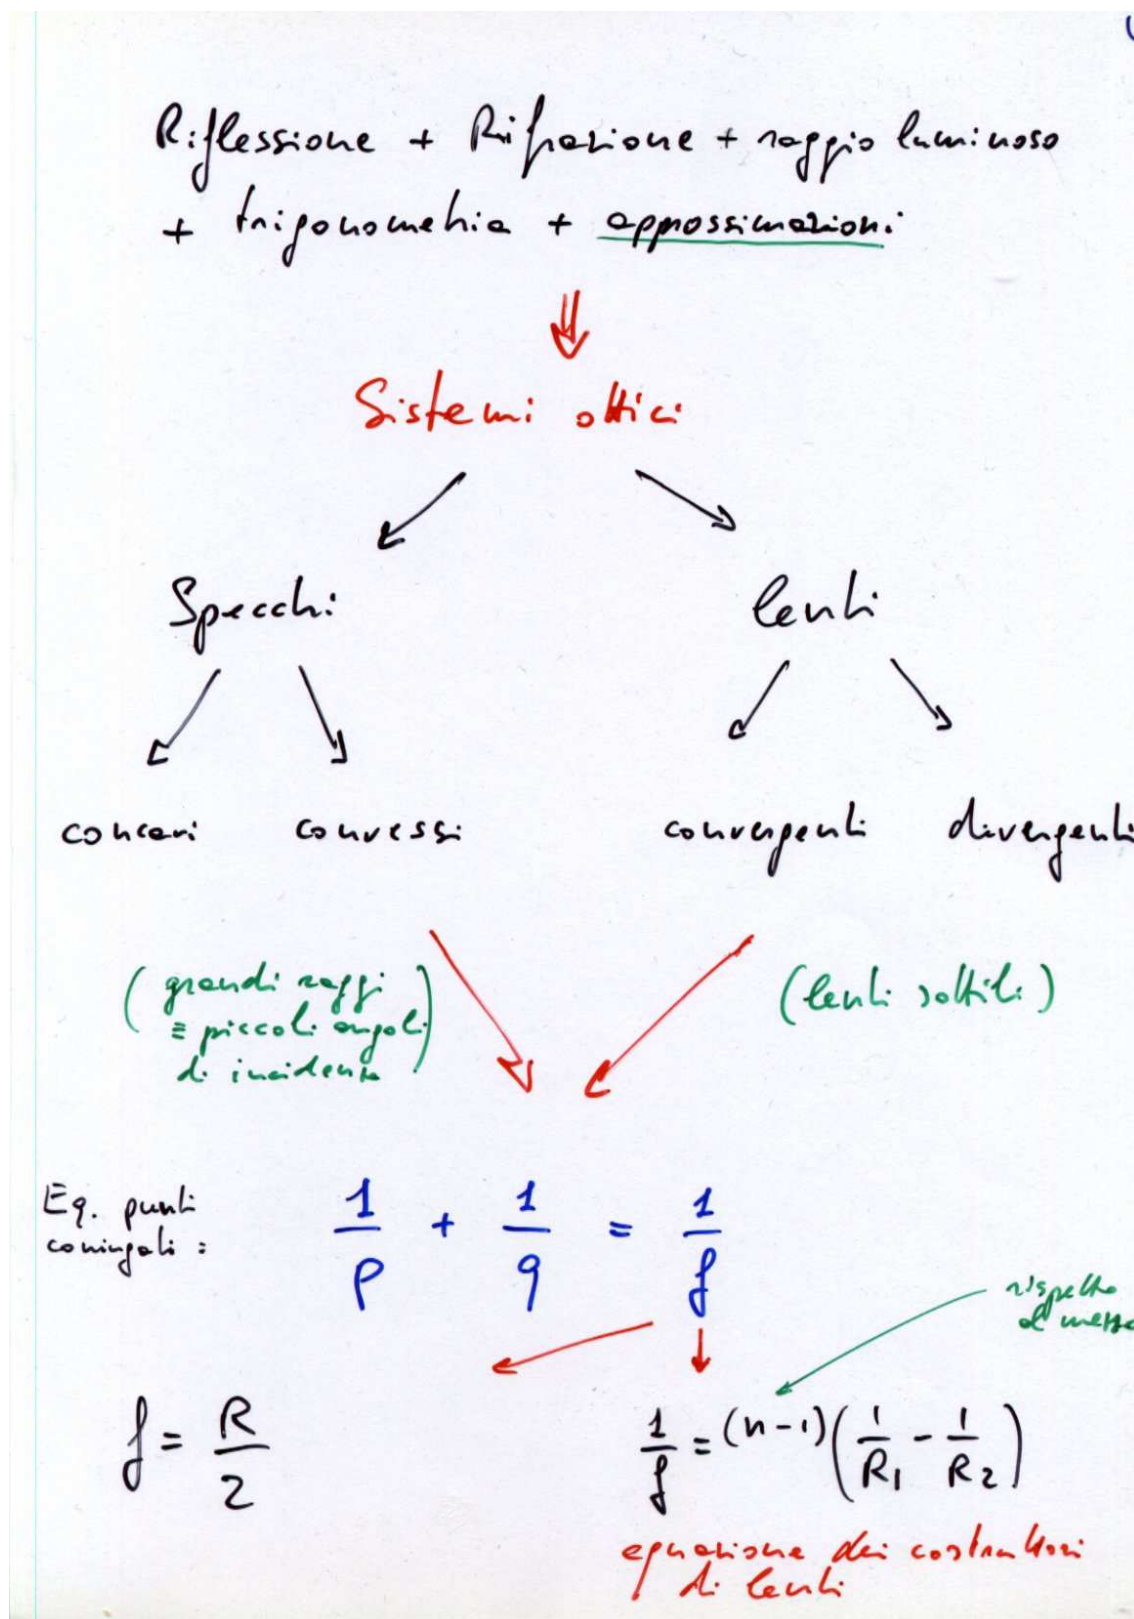 Riflessione + Rifrazione + raggio luminoso
+ trigonometria + approssimazioni
Sistemi ottici
Specchi lenti
concavi convessi convergenti divergenti
(grandi raggi
≡ piccoli angoli
di incidenza)
(lenti sottili)
Eq. punti
coniugati:
1/p + 1/q = 1/f
rispetto
al mezzo
f = R/2
1/f = (n-1)(1/R1 - 1/R2)
equazione dei costruttori
di lenti